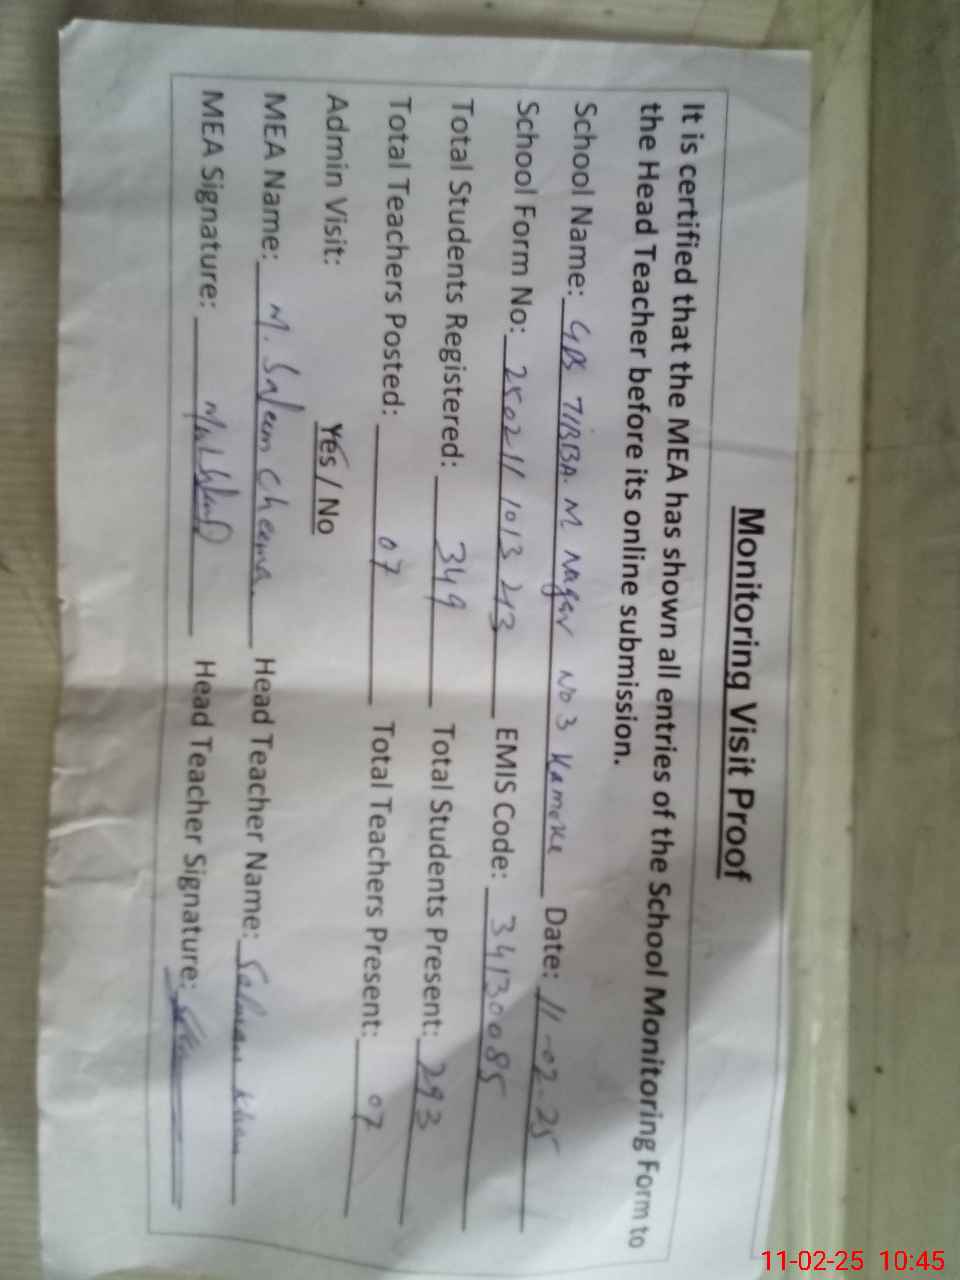 Monitoring Visit Proof
It is certified that the MEA has shown all entries of the School Monitoring Form to
the Head Teacher before its online submission.
School Name: GPS TIBBA M Nagar No 3 Kamoke Date: 11-02-25
School Form No: 250211 1013 213 EMIS Code: 34130085
Total Students Registered: 349 Total Students Present: 293
Total Teachers Posted: 07 Total Teachers Present: 07
Admin Visit: Yes / No
MEA Name: M. Saleem Cheema Head Teacher Name: Salman Khan
MEA Signature: Head Teacher Signature:
11-02-25 10:45